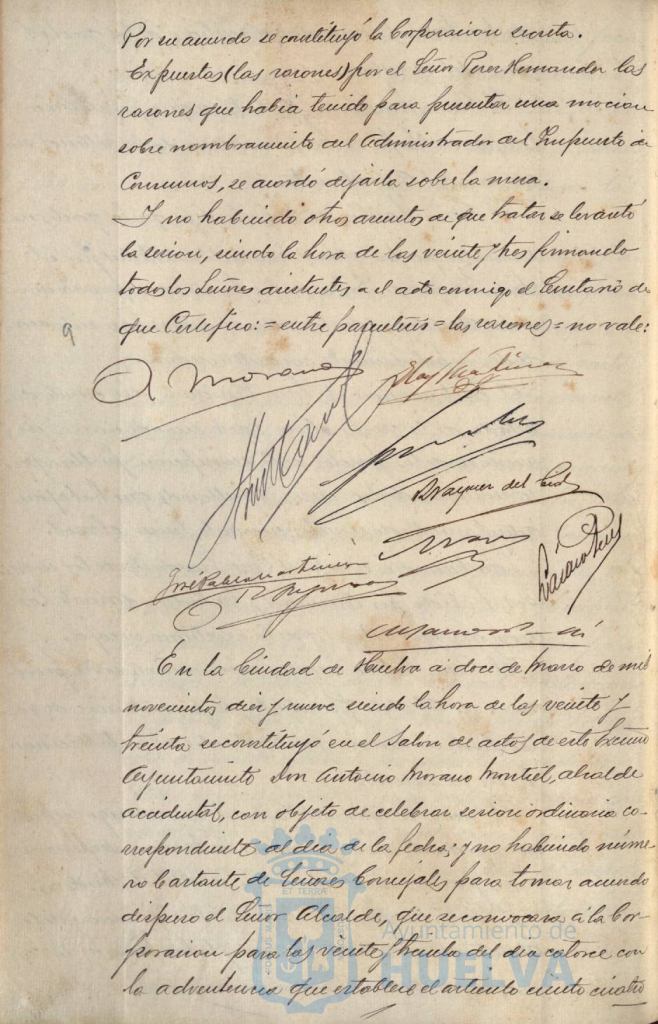 Por su acuerdo se constituyó la Corporacion secreta.
Expuestas (las rasones) por el Señor Perez Hernandez las
rasones que habia tenido para presentar una mocion
sobre nombramiento del Administrador del Impuesto de
Consumos, se acordó dejarla sobre la mesa.
Y no habiendo otros asuntos de que tratar se levantó
la sesion, siendo la hora de las veinte y tres firmando
todos los Señores asistentes a el acto conmigo el Secretario de
que Certifico: = entre parentesis = las rasones = no vale:
9
A Morano
Vazquez del Cid
José Pablo Martinez
En la Ciudad de Huelva á doce de Marzo de mil
novecientos diez y nueve siendo la hora de las veinte y
treinta se constituyó en el Salon de actos de este Excmo
Ayuntamiento Don Antonio Morano Montiel, alcalde
accidental, con objeto de celebrar sesion ordinaria co-
rrespondiente al dia de la fecha; y no habiendo núme-
ro bastante de Señores Concejales para tomar acuerdo
dispuso el Señor Alcalde, que se convocara á la Cor-
poracion para las veinte y treinta del dia catorce con
la advertencia que establece el articulo ciento cuatro
ET TERRA
Ayuntamiento de
HUELVA